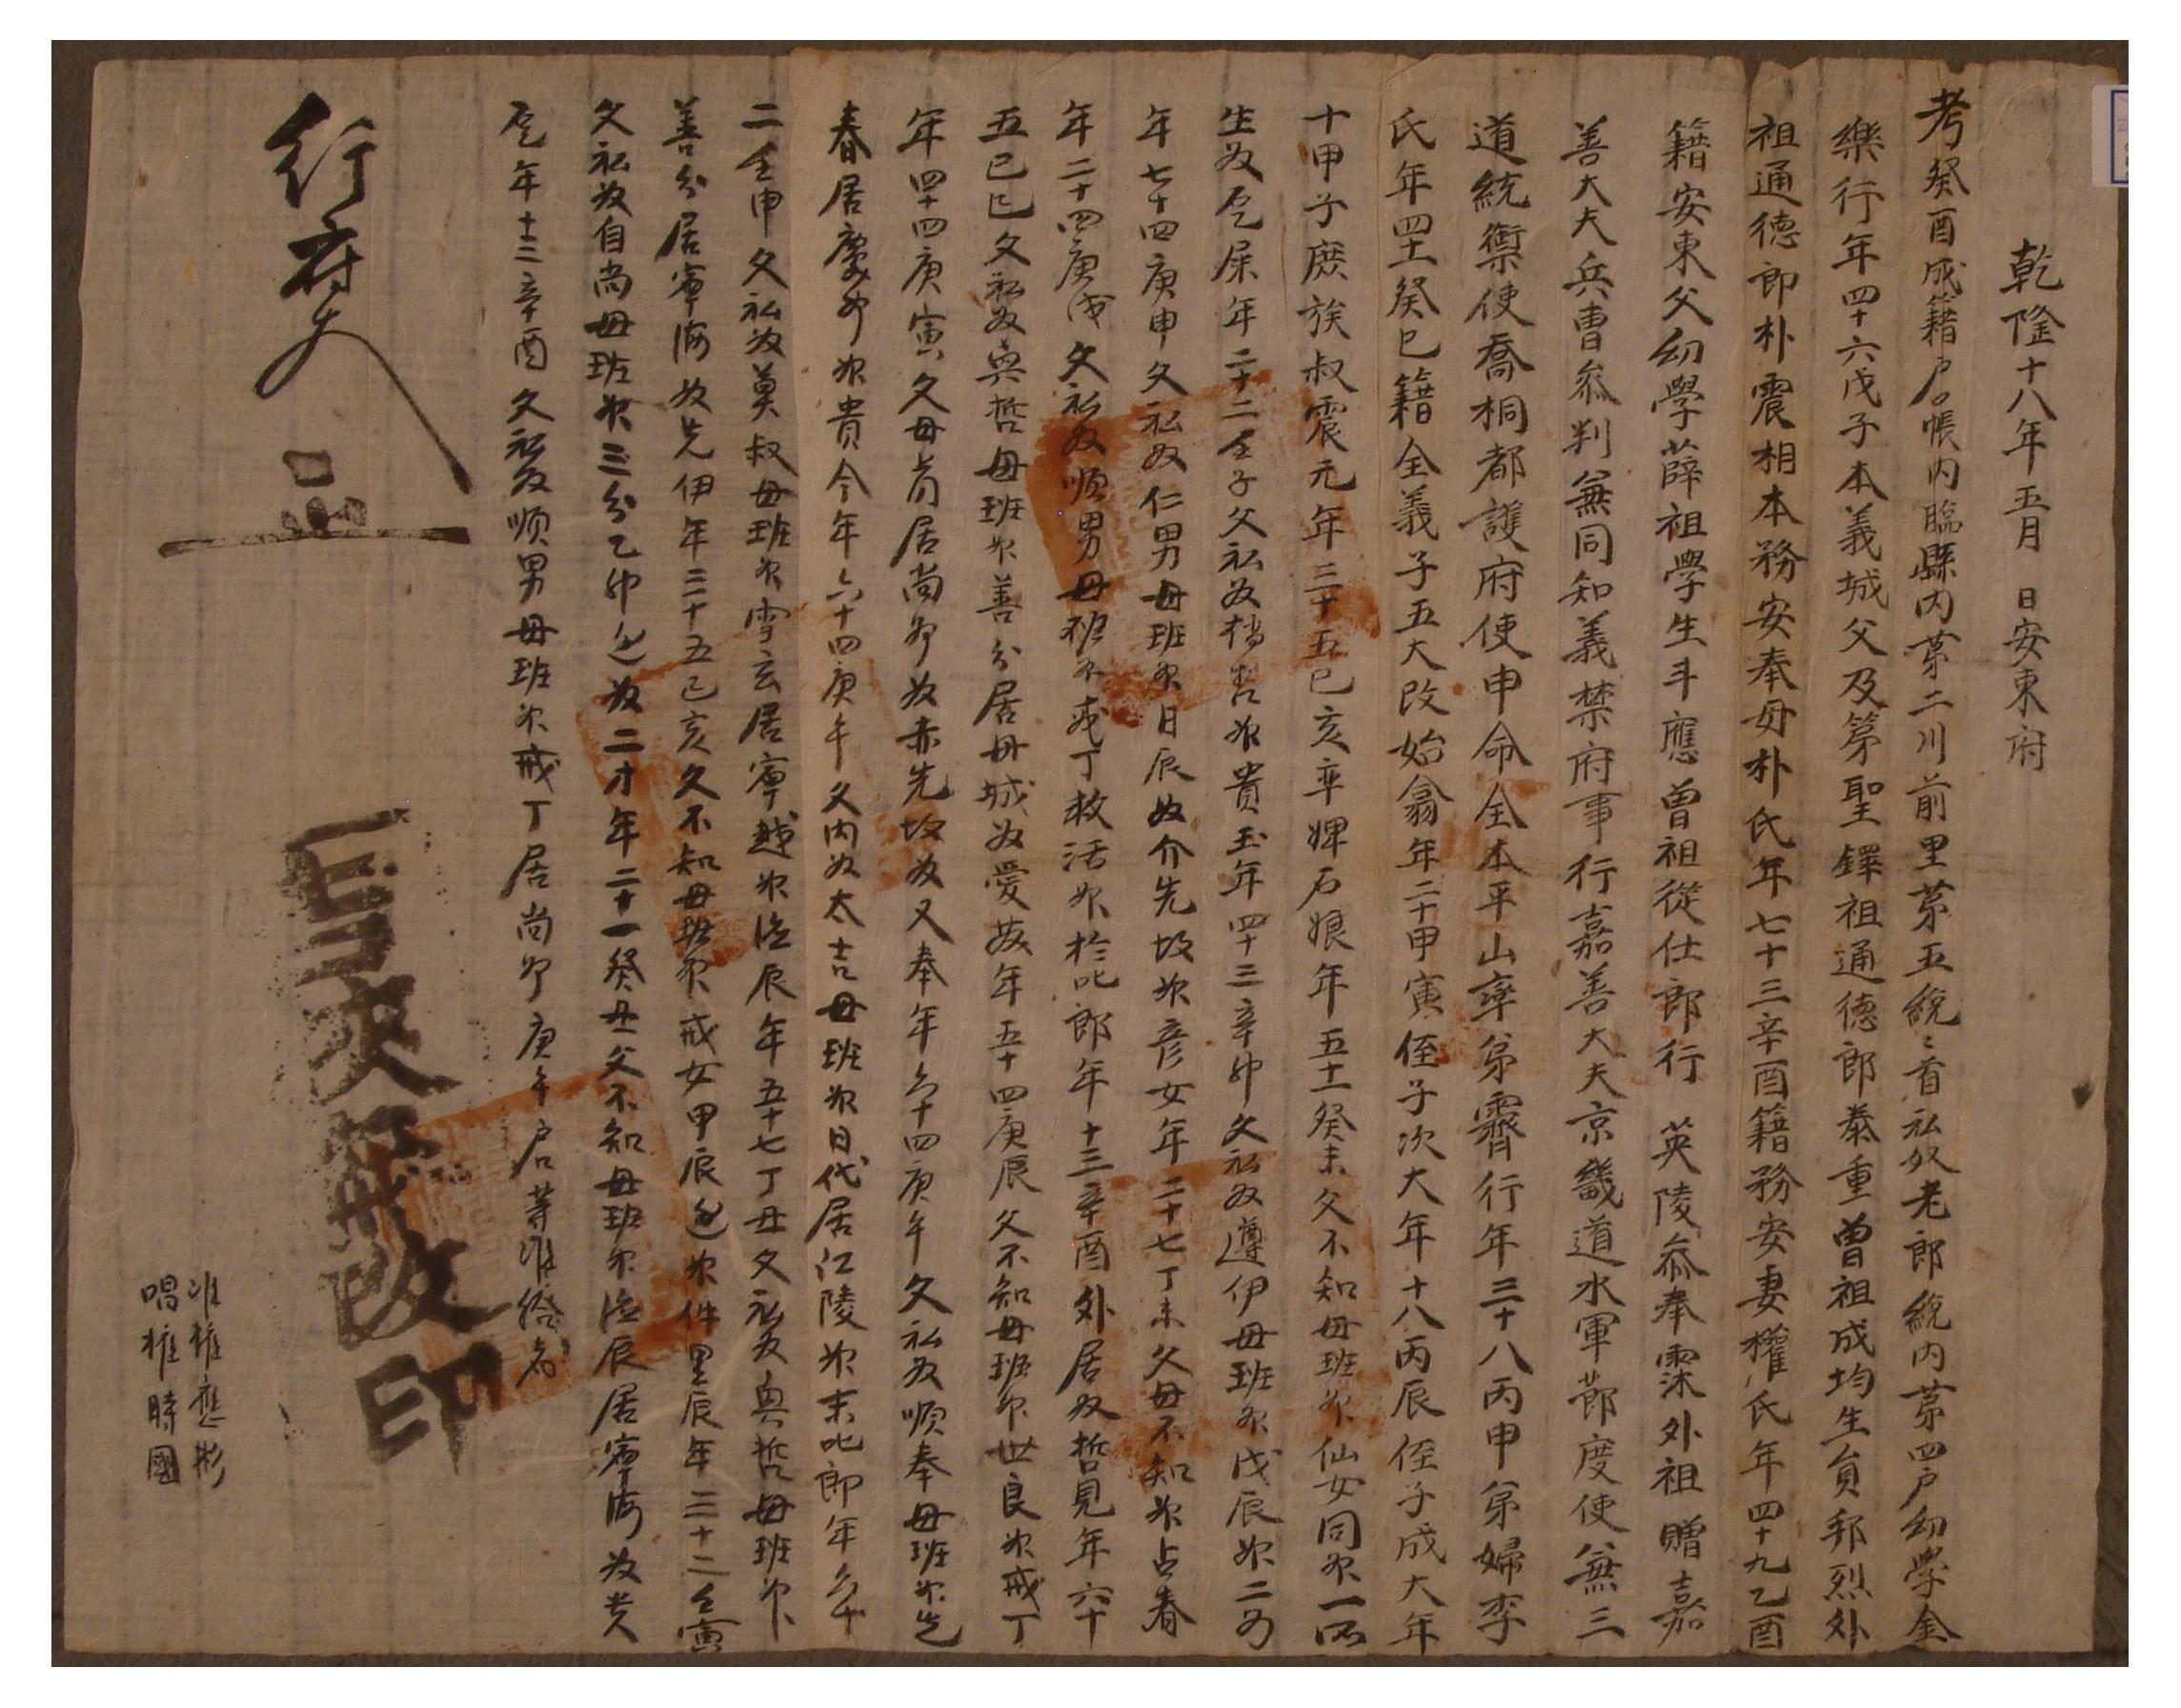 乾隆十八年五月 日安東府
考癸酉成籍戶帳內臨縣內第二川前里第五統統首私奴老郎統內第四戶幼學金
樂行年四十六戊子本義城父及第聖鐸祖通德郎泰重曾祖成均生員邦烈外
祖通德郎朴震相本務安奉母朴氏年七十三辛酉籍務安妻權氏年四十九乙酉
籍安東父幼學薛祖學生斗應曾祖從仕郎行 英陵參奉霂外祖贈嘉
善大夫兵曹參判兼同知義禁府事行嘉善大夫京畿道水軍節度使兼三
道統禦使喬桐都護府使申命全本平山率弟霽行年三十八丙申弟婦李
氏年四十一癸巳籍全義子五大改始翕年二十甲寅侄子次大年十八丙辰侄子成大年
十甲子庶族叔震元年三十五己亥率婢石娘年五十一癸未父不知母班婢仙女同婢一所
生奴 年二十二壬子父私奴 婢貴玉年四十三辛卯父私奴遵伊母班婢戊辰婢二所
年七十四庚申父私奴仁男母班婢日辰奴介先故婢彦女年二十七丁未父母不知婢占春
年二十四庚戌父私奴順男母班婢戒丁救活婢於叱郎年十三辛酉外居奴哲見年六十
五己巳父私奴興哲母班婢善分居母城奴愛 年五十四庚辰父不知母班婢世良婢戒丁
年四十四庚寅父母 居尚州奴赤先故奴又奉年六十四庚午父私奴順奉母班婢先
春居慶州婢貴今年六十四庚午父內奴太吉母班婢日代居江陵婢末叱郎年六十
二壬申父私奴莫叔母班婢雪玄居寧越婢 辰年五十七丁丑父私奴奥哲母班婢
善分居寧海奴先伊年三十五己亥父不知母班婢戒女甲辰逃婢件里辰年三十二壬寅
父私奴自尚母班婢三分乙卯逃奴二才年二十一癸丑父不知母班婢 辰居寧海奴
年十三辛酉父私奴順男母班婢戒丁居尚州庚午戶口等准給者
行府使
周挾無改印
准權應彬
唱權時國